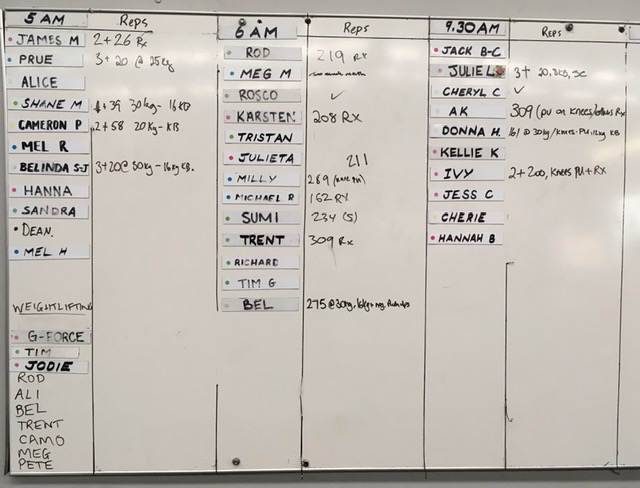 5 AM Reps
JAMES M 2+26 Rx
PRUE 3+ 20 @ 25kg
ALICE
SHANE M +39 30kg- 16KB
CAMERON P 2+58 20Kg-KB
MEL R
BELINDA S-J 3+20@30kg-16kg KB.
HANNA
SANDRA
DEAN.
MEL H
WEIGHTLIFTING
G-FORCE
TIM
JODIE
ROD
ALI
BEL
TRENT
CAMO
MEG
PETE
6 AM Reps
ROD 219 Rx
MEG M
ROSCO ✓
KARSTEN 208 RX
TRISTAN
JULIETA 211
MILLY
MICHAEL R 162 RX
SUMI 234 (S)
TRENT 309 Rx
RICHARD
TIM G
BEL 275@30kg, 16kg+
9.30AM REPS
JACK B-C
JULIE L 3+ SC
CHERYL C ✓
AK 309 (PU on KNEES/ Rx
DONNA H. @ 30kg/KNEES-PU, 12kg KB
KELLIE K
IVY 2+200, KNEES PU+RX
JESS C
CHERIE
HANNAH B